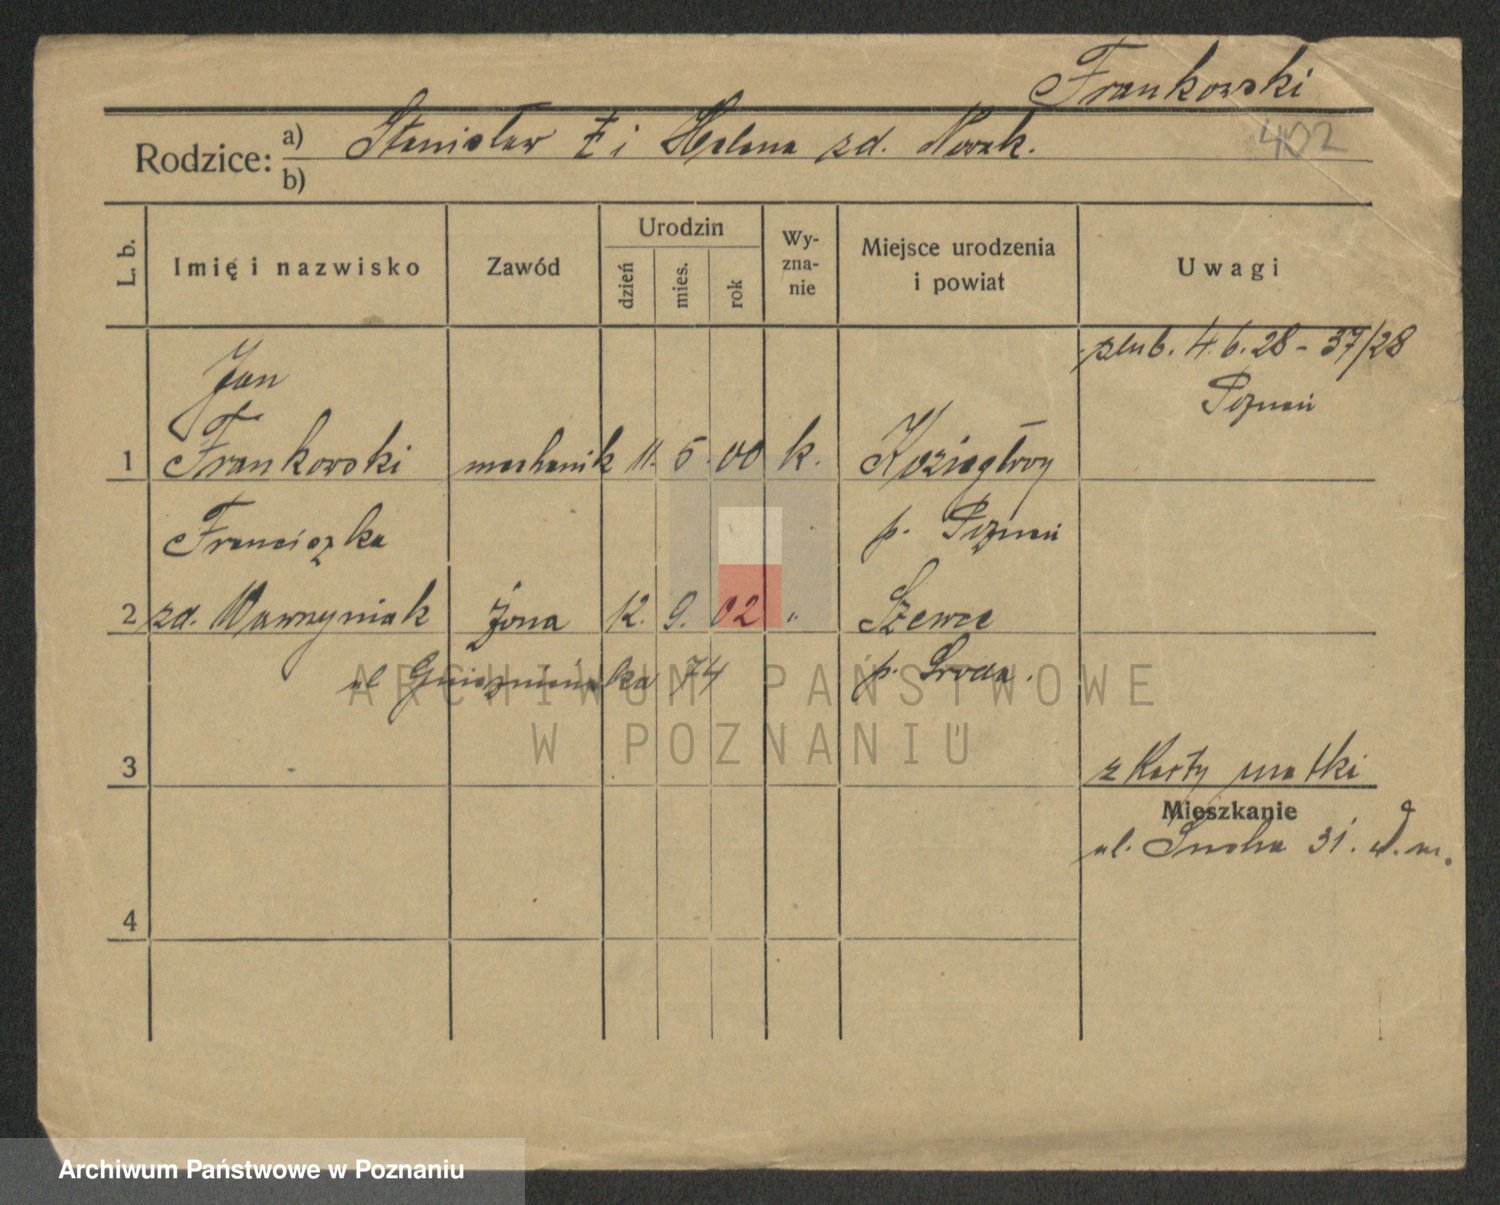 Frankowski
402
Rodzice: a) Stanisław i Helena zd. Nowak.
b)
L. b.
Imię i nazwisko
Zawód
Urodzin
dzień
mies.
rok
Wy-
zna-
nie
Miejsce urodzenia
i powiat
Uwagi
ślub. 4.6.28 - 37/28
Poznań
Jan
1 Frankowski mechanik 11. 5. 00 k. Koziegłowy
Franciszka p. Poznań
2 zd. Wawrzyniak żona 12. 9. 02 " Szewce
ul. Gnieźnieńska 74 p. Środa.
ARCHIWUM PAŃSTWOWE
W POZNANIU
3
z Karty matki
Mieszkanie
ul. Sucha 31.
4
Archiwum Państwowe w Poznaniu